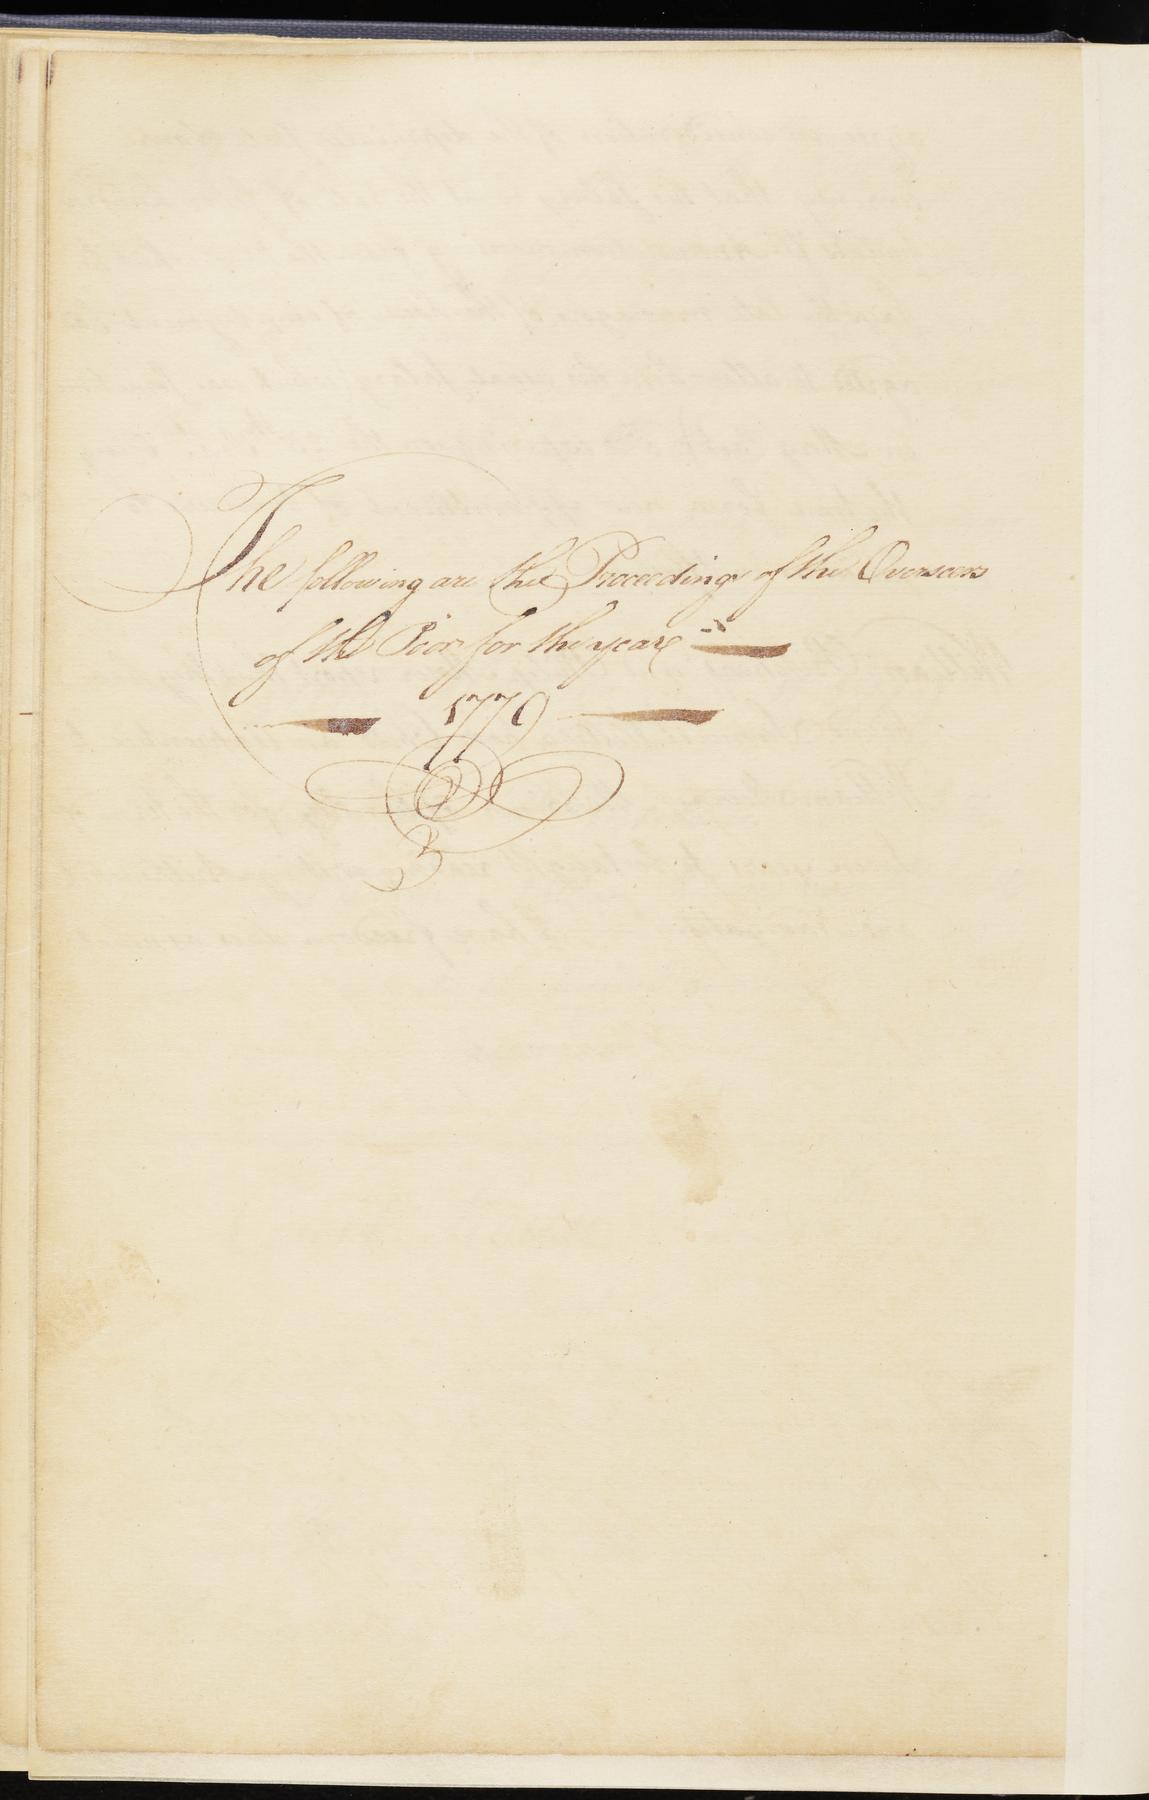 The following are the Proceedings of the Overseers
of the Poor for the year
1779